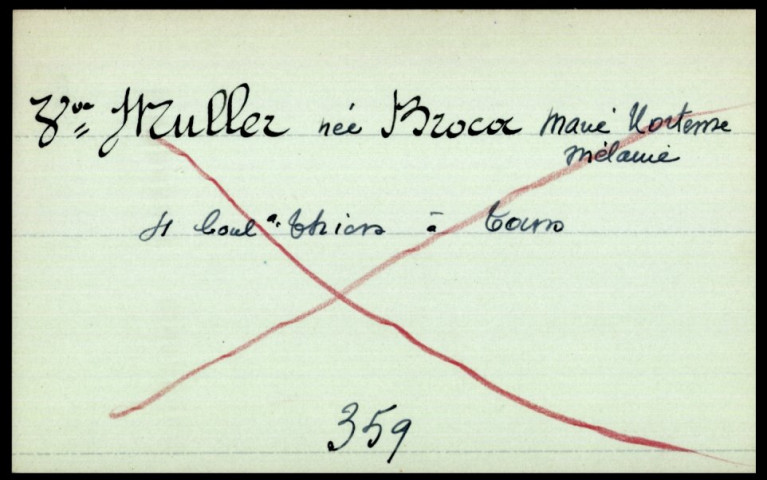 Vve Muller née Broca Marie Hortense
Mélanie
41 Boul. Thiers à Tours
359